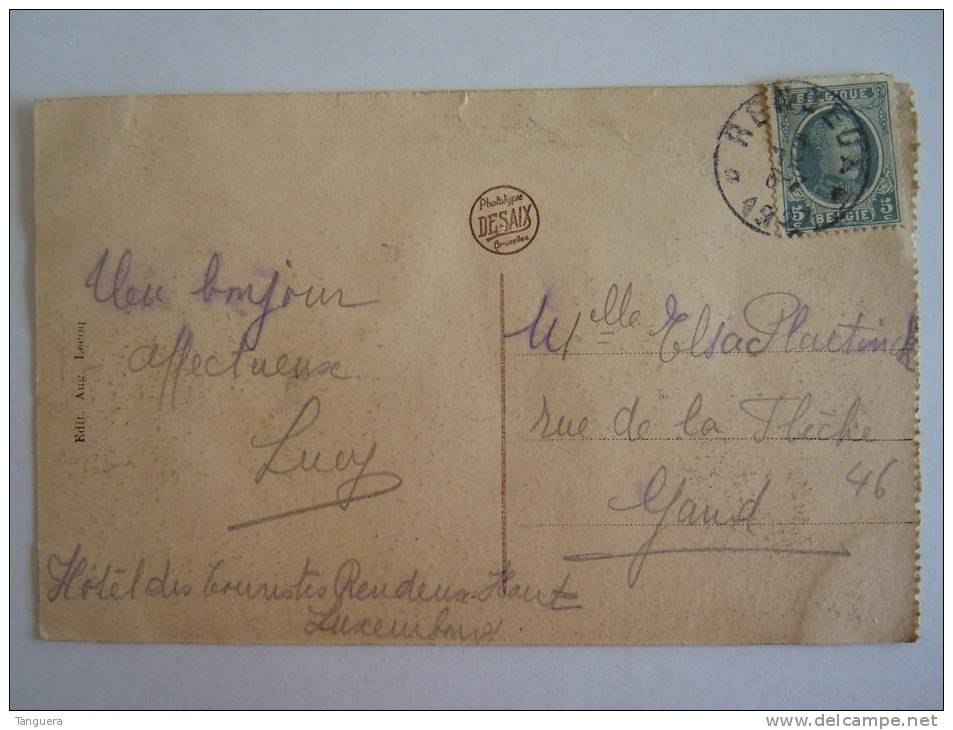 BELGIQUE
RENDEUX
5c BELGIË 5c
Phototypie
DESAIX
Bruxelles
Edit. Aug. Lecoq
Un bonjour
affectueux
Lucy
Hôtel des Touristes Rendeux-Haut
Luxembourg
Mlle Elsa
rue de la Flèche
46
Gand
Tanguera
www.delcampe.net